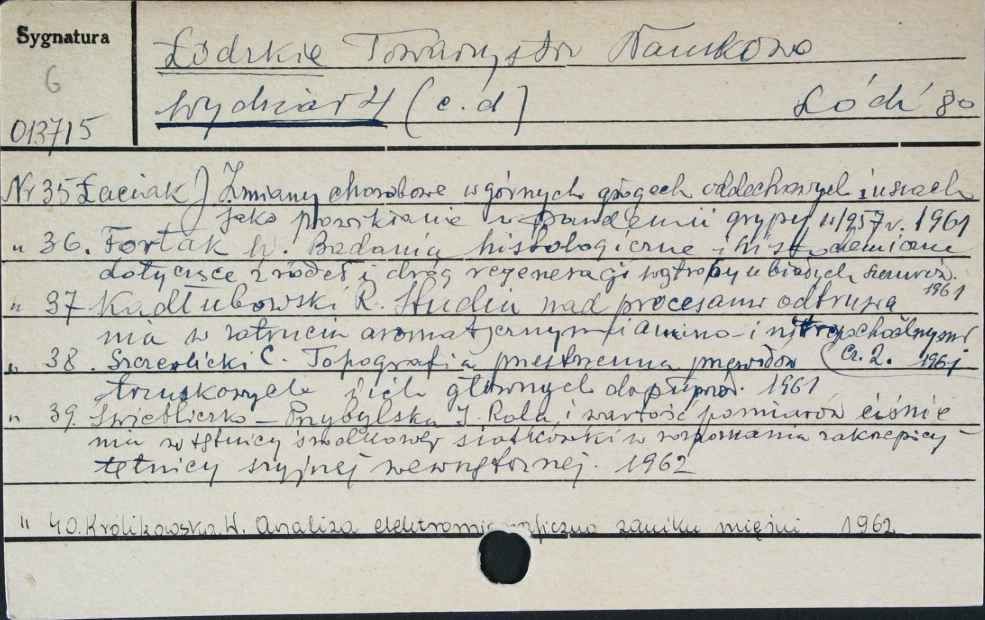 Sygnatura
6
013715
Łódzkie Towarzystw Naukowe
Wydział 4 (c.d) Łódź 80
Nr 35 Łaciak J Zmiany chorobowe w górnych drogach oddechowych i uszach
jako powikłanie w pandemii grypy w 1957 r. 1961
" 36. Fortak W. Badania histologiczne i hist. chemiczne
dotyczące źródeł i dróg regeneracji wątroby u białych
" 37 Kadłubowski R. Studia nad procesami odtruwa 1961
nia w zatruciu aromatycznymi amino- i nitrozwiązkami
" 38. Szczerlicki C. Topografia przestrzenna przewodów Cz. 2. 1961
trzustkowych i ich głównych dopływów. 1961
" 39. Świetliczko - Przybylska J. Rola i wartość pomiarów ciśnie
nia w tętnicy środkowej siatkówki w rozpoznaniu zakrzepicy
tętnicy szyjnej wewnętrznej. 1962
" 40. Królikowska W. Analiza elektromiograficzna zaniku mięśni 1962